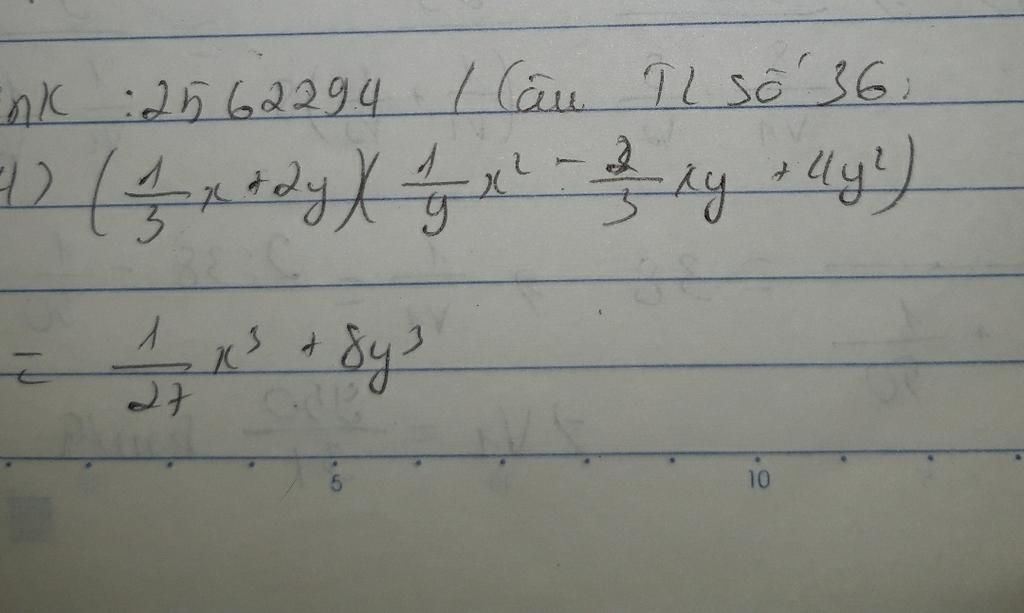 nk : 2562294 / Câu TL số 36:
1) (1/3 x + 2y)(1/9 x² - 2/3 xy + 4y²)
= 1/27 x³ + 8y³
5 10